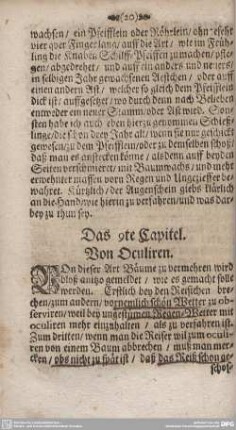 (20)
wachsen / ein Pfeifflein oder Röhrlein / ohngefehr
vier quer Finger lang / auff die Art / wie im Früh-
ling die Knaben Schilff-Pfeiffen zu machen / pfle-
gen / abzedrehet / und auff ein anders und neuers /
in selbigen Jahr gewachsenen Aestchen / oder auff
einen andern Ast / welcher so gleich dem Pfeifflein
dick ist / auffgesetzet / wo durch denn nach Belieben
entweder ein neuer Stamm / oder Ast wird. Son-
sten habe ich auch eben hierzu genommen Schieß-
linge / die schon drey Jahr alt / wenn sie nur geschickt
gewesen / zu dem Pfeifflein / oder zu demselben schoß /
daß man es anstecken könne / als denn auff beyden
Seiten verschmieret / mit Baumwachs / und mehr
erwehnter massen vorn Regen und Ungezieffer be-
wahret. Kürtzlich / der Augenschein giebs klärlich
an die Hand / wie hierin zu verfahren / und was dar-
bey zu thun sey.
Das 9te Capitel.
Von Oculiren.
VOn dieser Art Bäume zu vermehren wird
bloß anitzo gemeldet / wie es gemacht soll
werden. Erstlich bey den Reisichen bre-
chen / zum andern / vornemlich schön Wetter zu ob-
serviren / weil bey ungestümen Regen-Wetter mit
oculiren mehr einzuhalten / als zu verfahren ist.
Zum dritten / wenn man die Reiser wil zum oculi-
ren von einem Baum abbrechen / muß man mer-
cken / obs nicht zu spät ist / daß das Reiß schon ge-
schos-